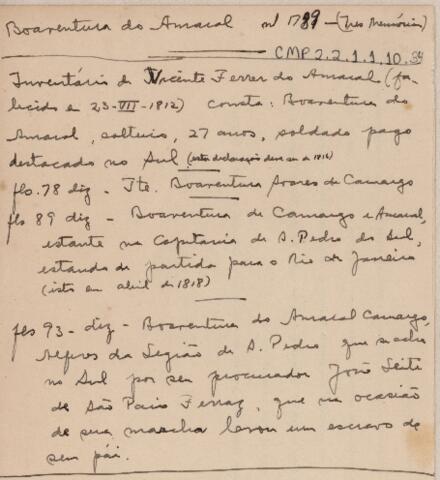 Boaventura do Amaral nl 1789 - (Tres Memórias)
CMP 2.2.1.1.10.34
Inventário de Vicente Ferrer do Amaral (fa-
lecido em 23-VII-1812) consta: Boaventura do
Amaral, solteiro, 27 anos, soldado pago
destacado no Sul (esta declaração deve ser de 1816)
fls. 78 diz - Tte. Boaventura Soares de Camargo
fls 89 diz - Boaventura de Camargo e Amaral,
estante na Capitania de S. Pedro do Sul,
estando de partida para o Rio de Janeiro
(isto em abril de 1818)
fls 93 - diz - Boaventura do Amaral Camargo,
Alferes da Legião de S. Pedro que se acha
no Sul por seu procurador José Leite
de São Paio Ferraz, que na ocasião
de sua marcha levou um escravo de
seu pái.